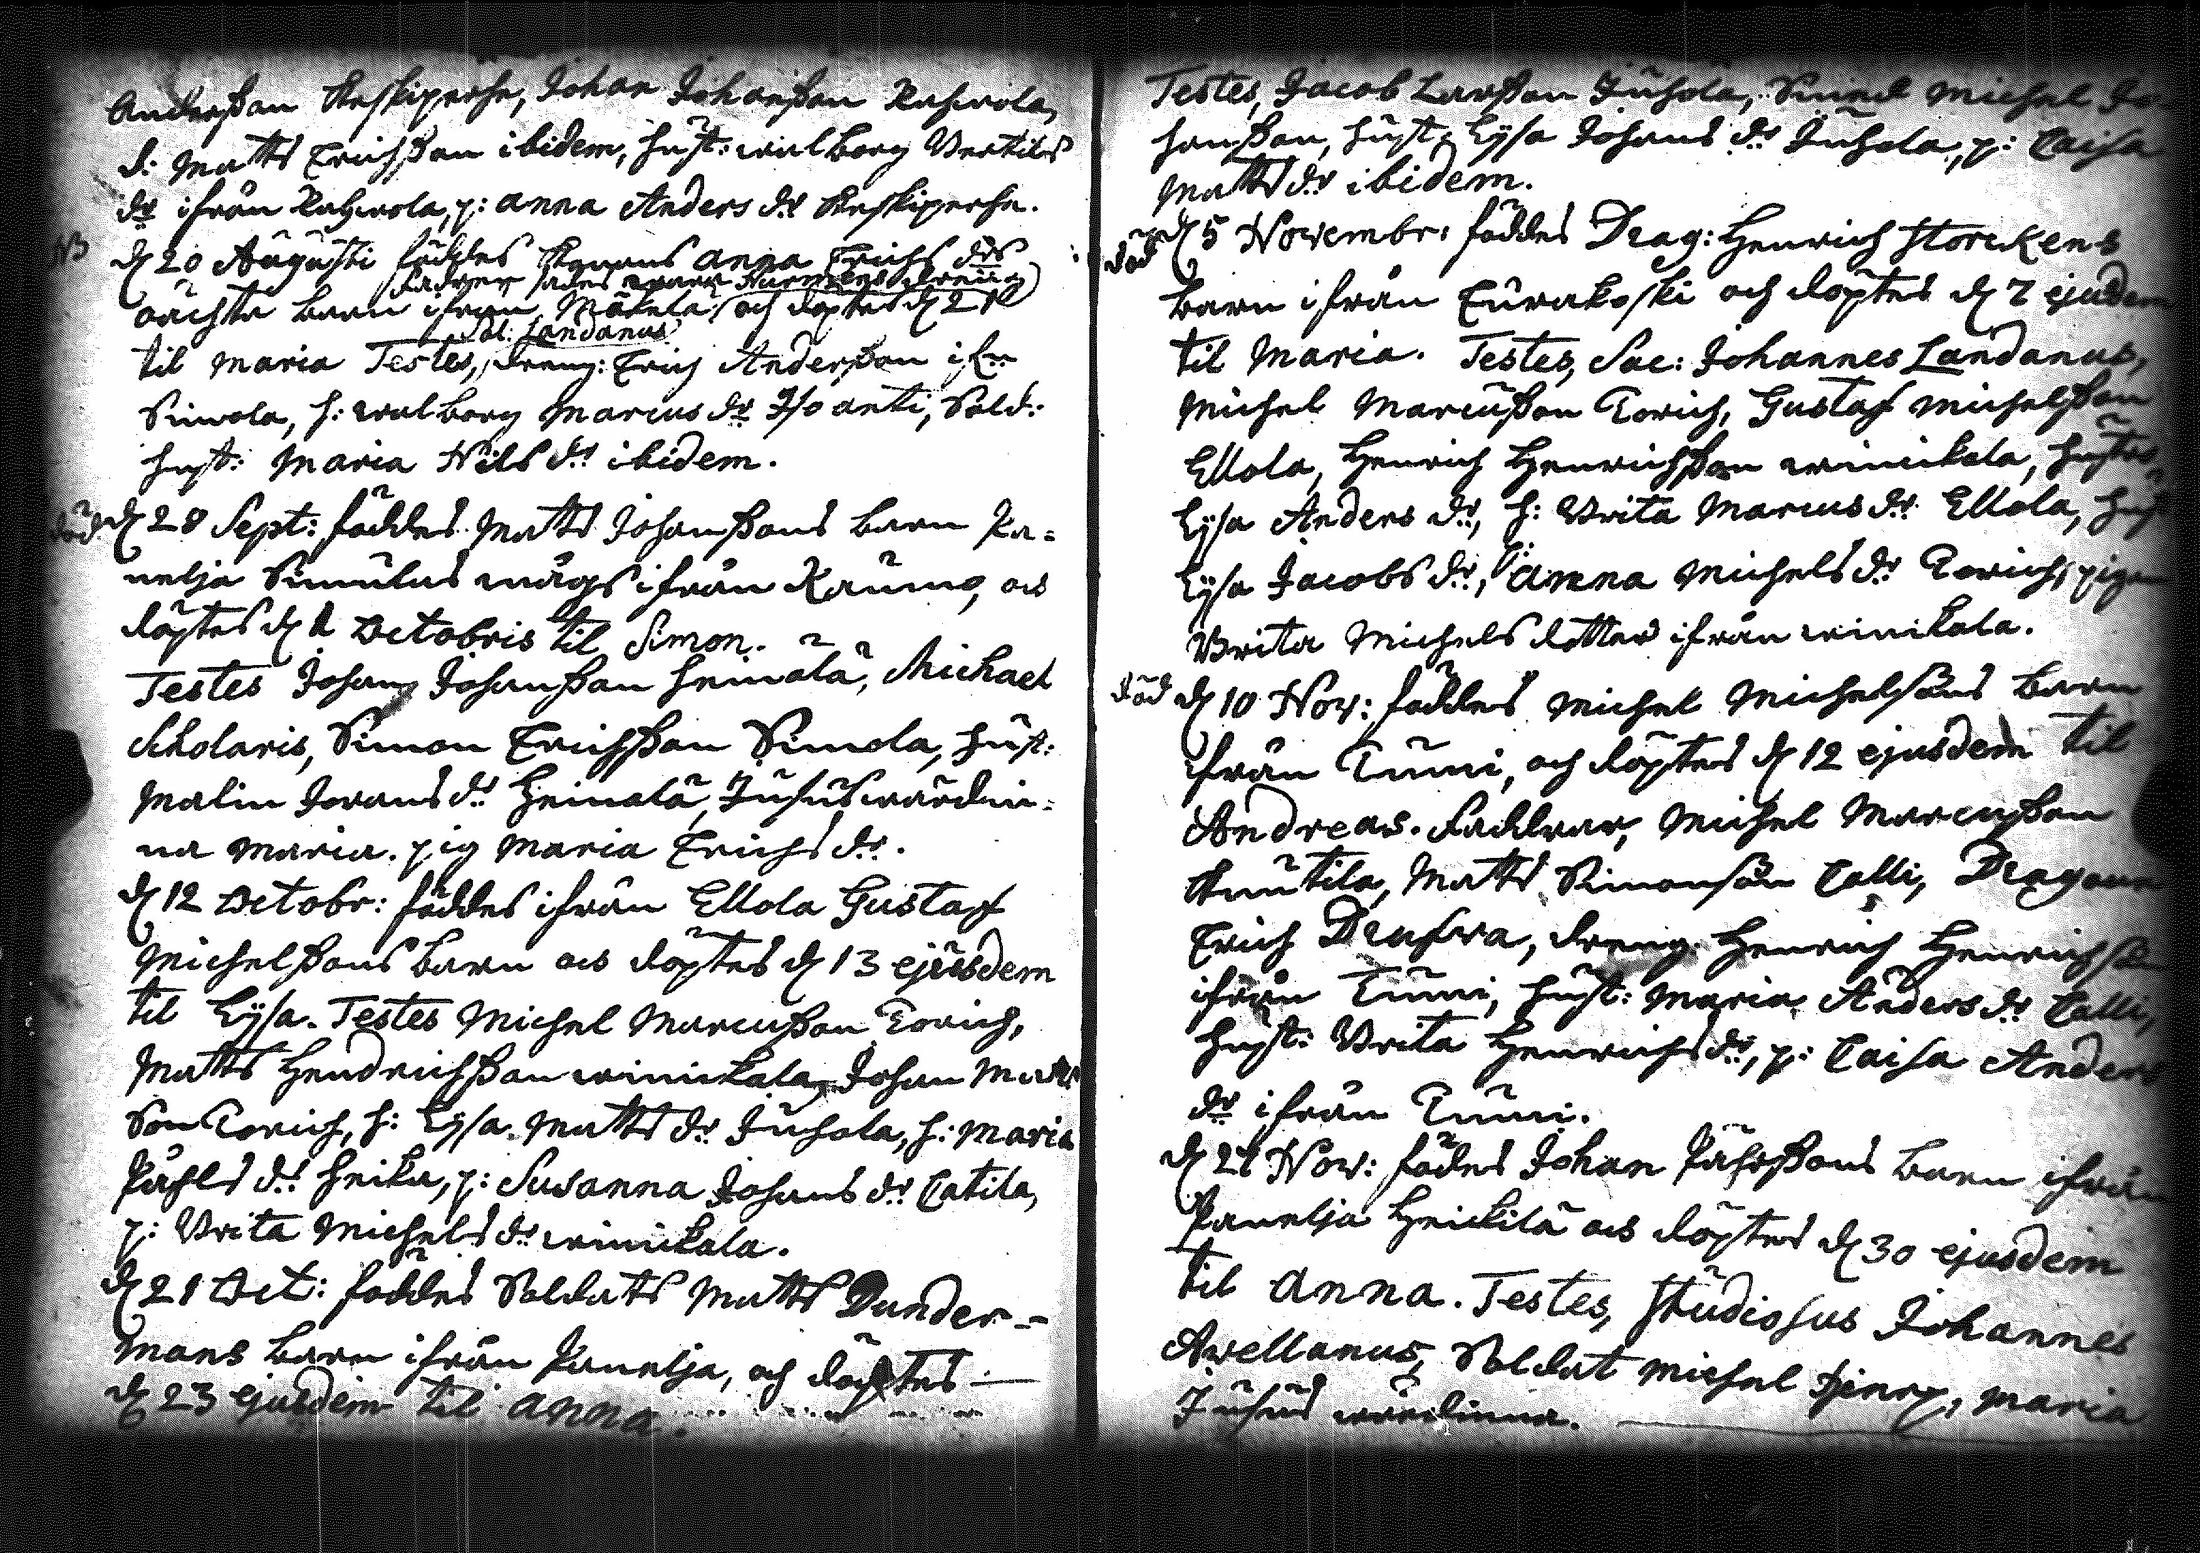 Anderßon Keskiperhe, Johan Johanßon Rahwola,
d: Matts Erichßon ibidem, hust: walborg Bertils
dr ifrån Rahwola, p: anna Anders dr Keskiperhe.
NB d 20 Augusti föddes Konans anna Erichs drs
fadren sades wara Nurmens dreing
oächta barn ifrån Mäkelä och döptes d 21
Stud: Landanus
til Maria Testes, dreng: Erich Anderßon ifrn
Simola, h: walborg Marcus dr Isoanti, Sold:
hust: Maria Nils dr ibidem.
död d 28 Sept: föddes Matts Johanßons barn Pa=
nelja Simulas mågs ifrån Raumo, och
döptes d 1 Octobris til Simon.
Testes Johan Johanßon heinälä, Michael
Scholaris, Simon Erichßon Simola, hust:
Malin Jorans dr Heinälä, Juhus wärdin=
na Maria. pig Maria Erichs dr.
d 12 Octobr: föddes ifrån Ellola Gustaf
Michelßons barn och döptes d 13 ejusdem
til Lysa. Testes Michel Marcußon Torich,
Matts Hendrichßon winikala, Johan Matts
Son Torich, h: Lysa Matts dr Juhola, h: Maria
Påhls dr heika, p: Susanna Johans dr Catila,
p: Brita Michels dr winikala.
d 21 Oct: föddes Soldats Matts Dunder-
mans barn ifrån Panelja, och döptes
d 23 ejusdem til anna.
Testes, Jacob Larßon Juhola, Michel Jo
hanßon, hust: Lysa Johans dr Juhola, p: Caisa
Matts dr ibidem.
död d 5 Novembr: föddes Drag: Henrich Storckens
barn ifrån Eurakoski och döptes d 7 ejusdem
til Maria. Testes, Sac: Johannes Landanus,
Michel Marcußon Torich, Gustaf Michelßon
Ellola, Henrich Henrichßon winikala, hustr
Lysa Anders dr, h: Brita Marcus dr Ellola, hust
Lysa Jacobs dr, p: anna Michels dr Torich, pigan
Brita Michels dotter ifrån winikala.
död d 10 Nov: föddes Michel Michelsons barn
ifrån Tumi, och döptes d 12 ejusdem til
Andreas. Faddrar, Michel Marcußon
Knutila, Matts Simonson Calli, Dragoun
Erich Drufwa, dreng Henrich Henrichson
ifrån Tumi, hust: Maria Anders dr Calli,
hust: Brita Henrichs dr, p: Caisa Anders
dr ifrån Tumi.
d 24 Nov: föddes Johan Påhlßons barn ifrån
Panelja Heickilä och döptes d 30 ejusdem
til Anna. Testes, Studiosus Johannes
Avellanus, Soldat Michel Hjerp, Maria
Juhus wärdinna.